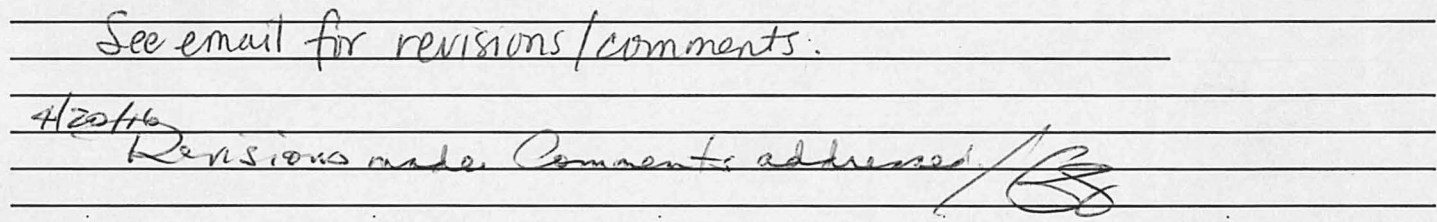 See email for revisions/comments.
4/20/16
Revisions made. Comments addressed./